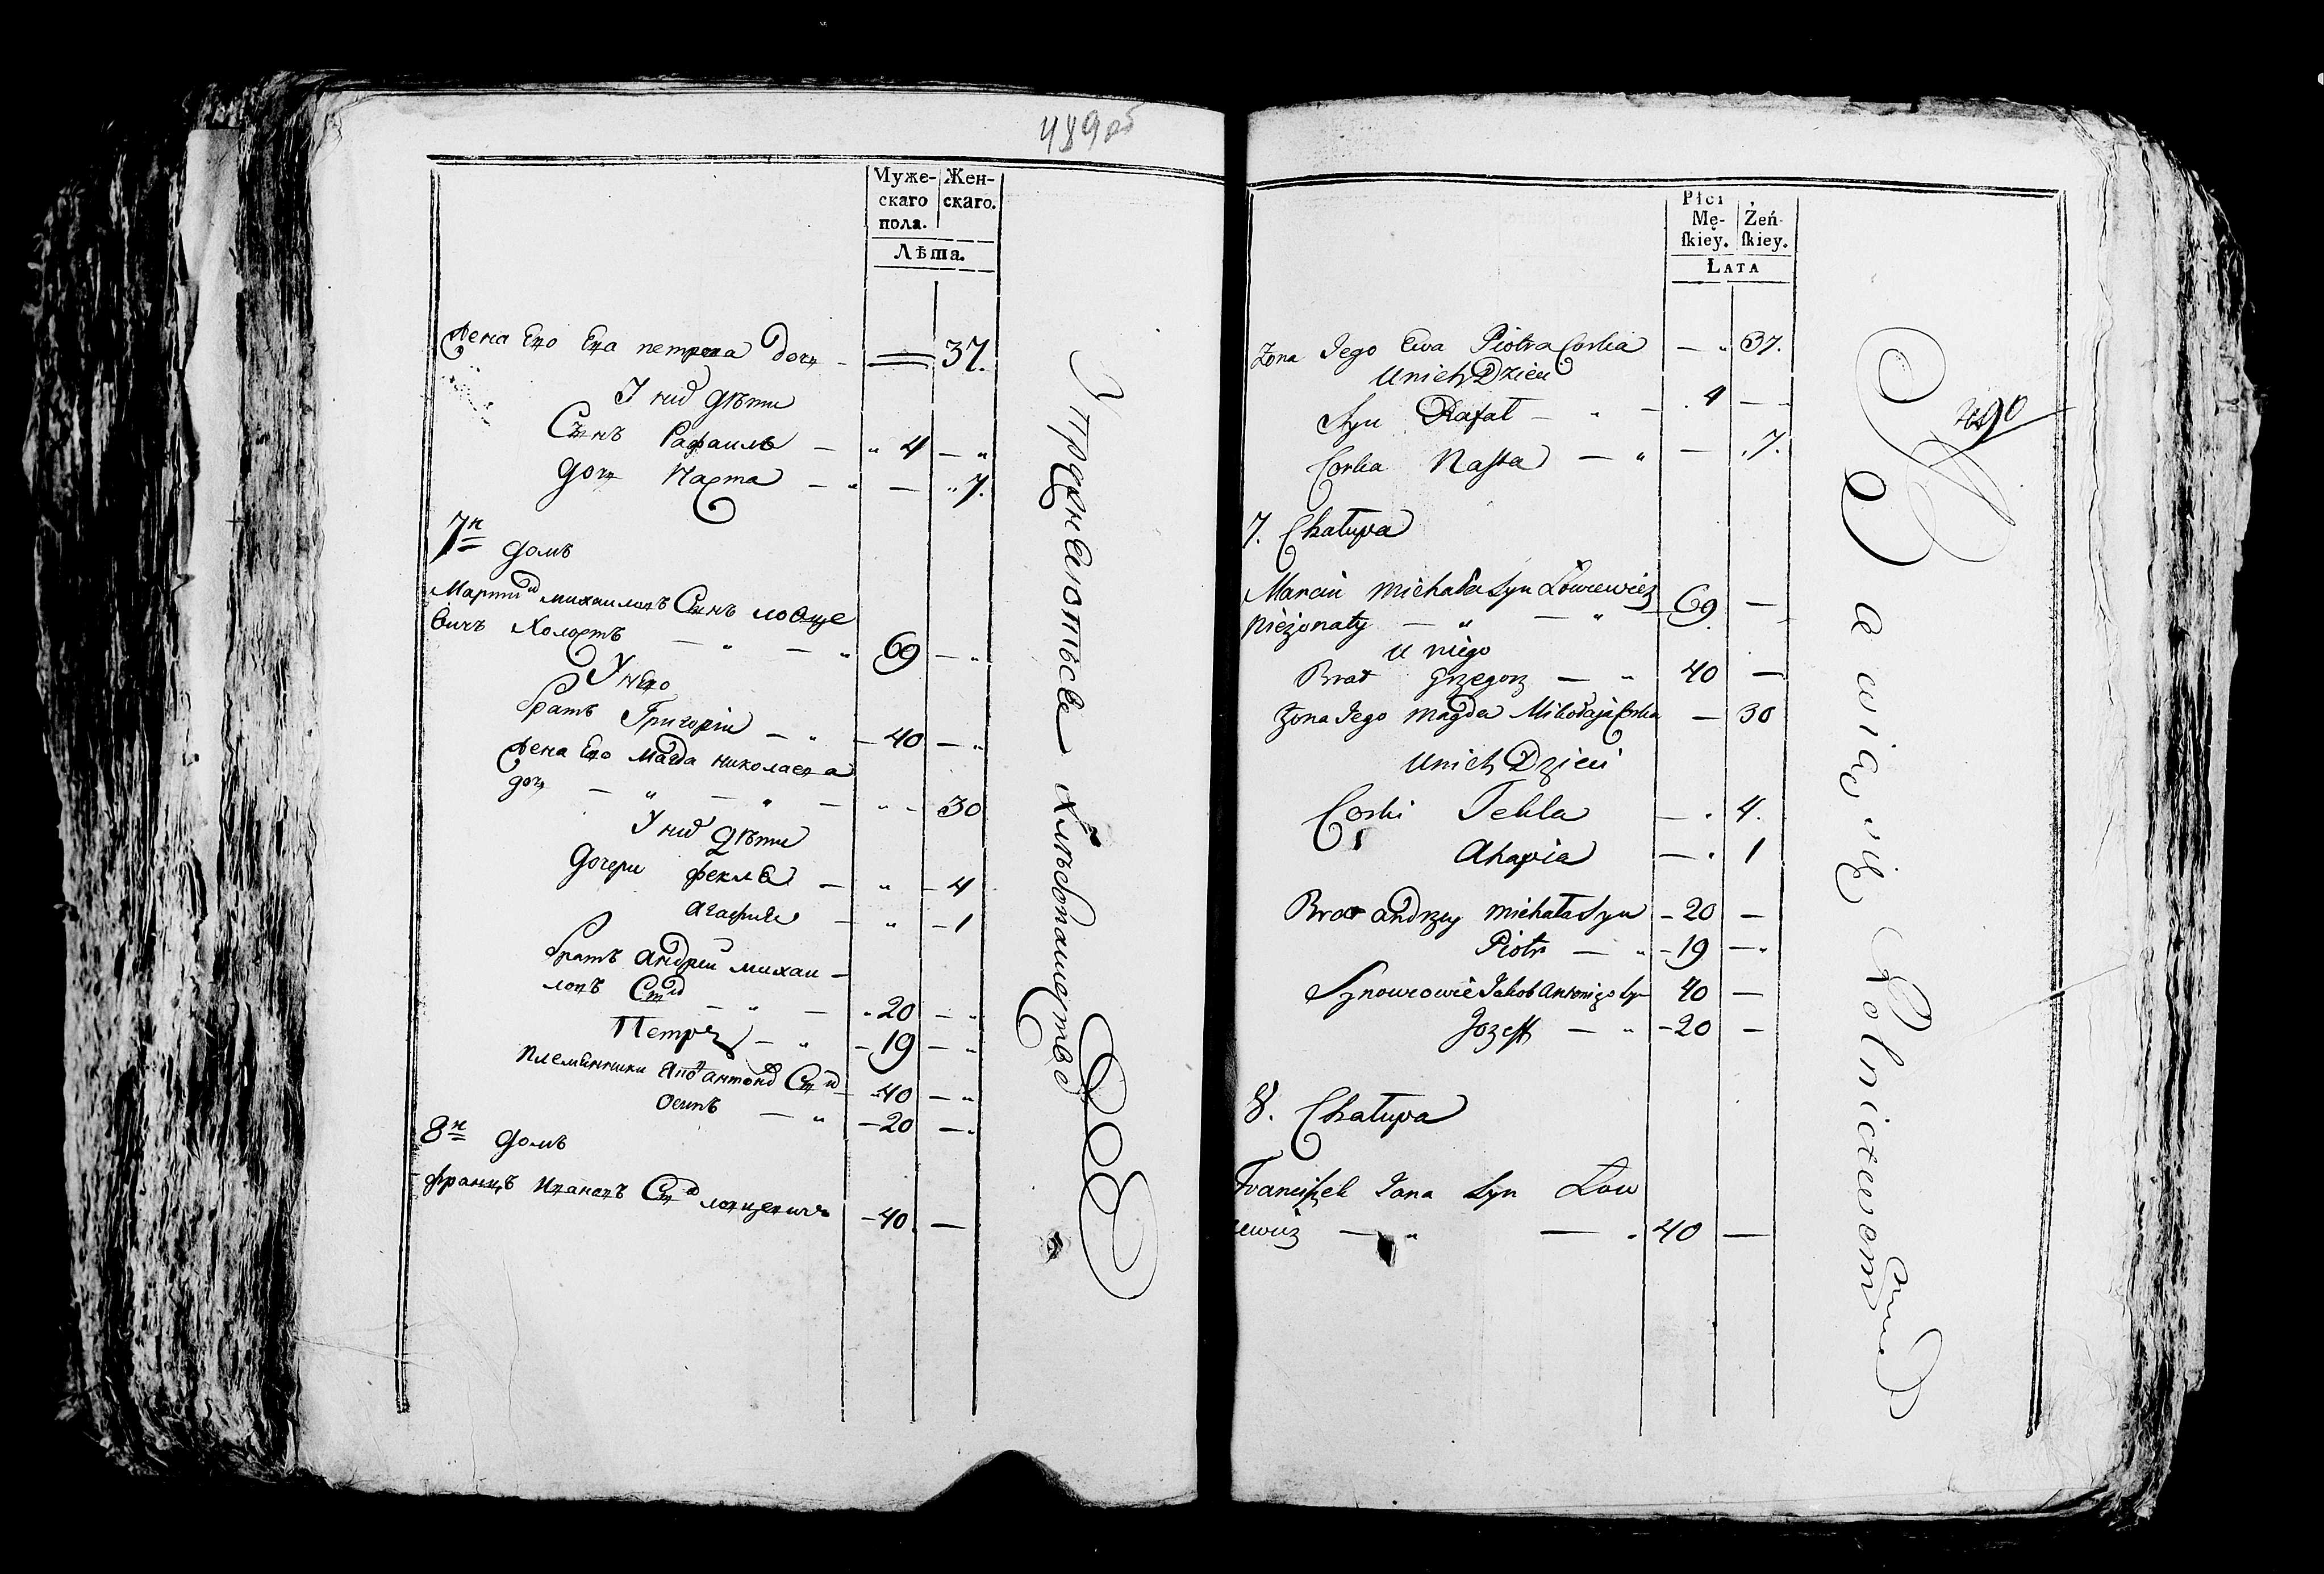 489об
Муже-
скаго
пола.
Жен-
скаго.
Лѣта.
Жена Его Ева петрова Доч
37.
У них дѣти
Сынъ Рафаилъ — „ 4 — „
доч Настa — „ — „ 7.
7й домъ
Мартин михаиловъ Сынъ ловце
вичъ Холостъ — „ — „ 69 — „
У него
братъ Григоріи — „ — 40 — „
Жена Его Магда николаева
доч — „ — „ — „ - 30
У них дѣти
дочери фекла — „ — 4
агафия — „ — 1
братъ андреи михаи —
ловъ Сын — „ — „ 20 — „
Петръ — „ — 19 — „
племянники Яков антонов Сын — 40 — „
осипъ — „ — 20 — „
8й домъ
францъ ивановъ Сын ловцевичъ — 40 —
хлѣбопашество
Płci
Mę-
ſkiey.
Żeń-
ſkiey.
LATA
490
Zona Jego Ewa Piotra Corka — „ 37.
U nich Dzieci
Syn Rafał — „ — . 4 — „
Corka Nasta — „ — . 7.
7. Chałupa
Marcin Michała Syn Łowcewicz
Nieżonaty — „ — „ 69 —
U niego
Brat Grzegorz — „ 40 —
Zona Jego Magda Mikołaja Corka — 30
U nich Dzieci
Corki Tekla — . 4.
Ahapia — . 1
Brat Andrzey Michała Syn — 20 —
Piotr — „ — 19 — „
Synowcowie Jakob Antoniego Syn 40 —
Jozeff — „ — 20 —
8. Chałupa
Franciszek Jana Syn Łow
cewicz — „ — . 40 —
Bawią się Rolnictwem